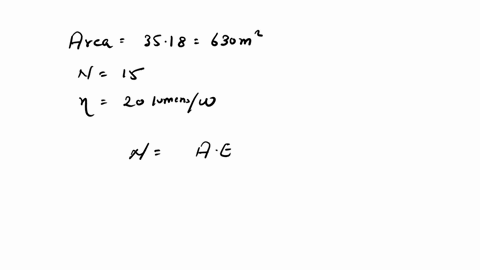 Area = 35.18 = 630m²
N = 15
η = 20 lumens/w
N = A.E